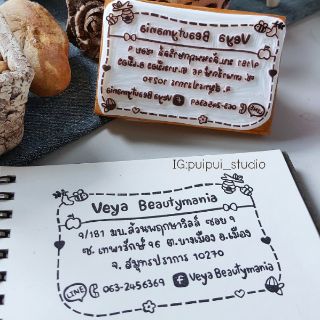 IG:puipui_studio
Veya Beautymania
9/181 มบ.ล้วนพฤกษาวิลล์ ซอย 9
ซ. เทพารักษ์ 96 ต.บางเมือง อ.เมือง
จ. สมุทรปราการ 10270
LINE 063-2456369 f Veya Beautymania